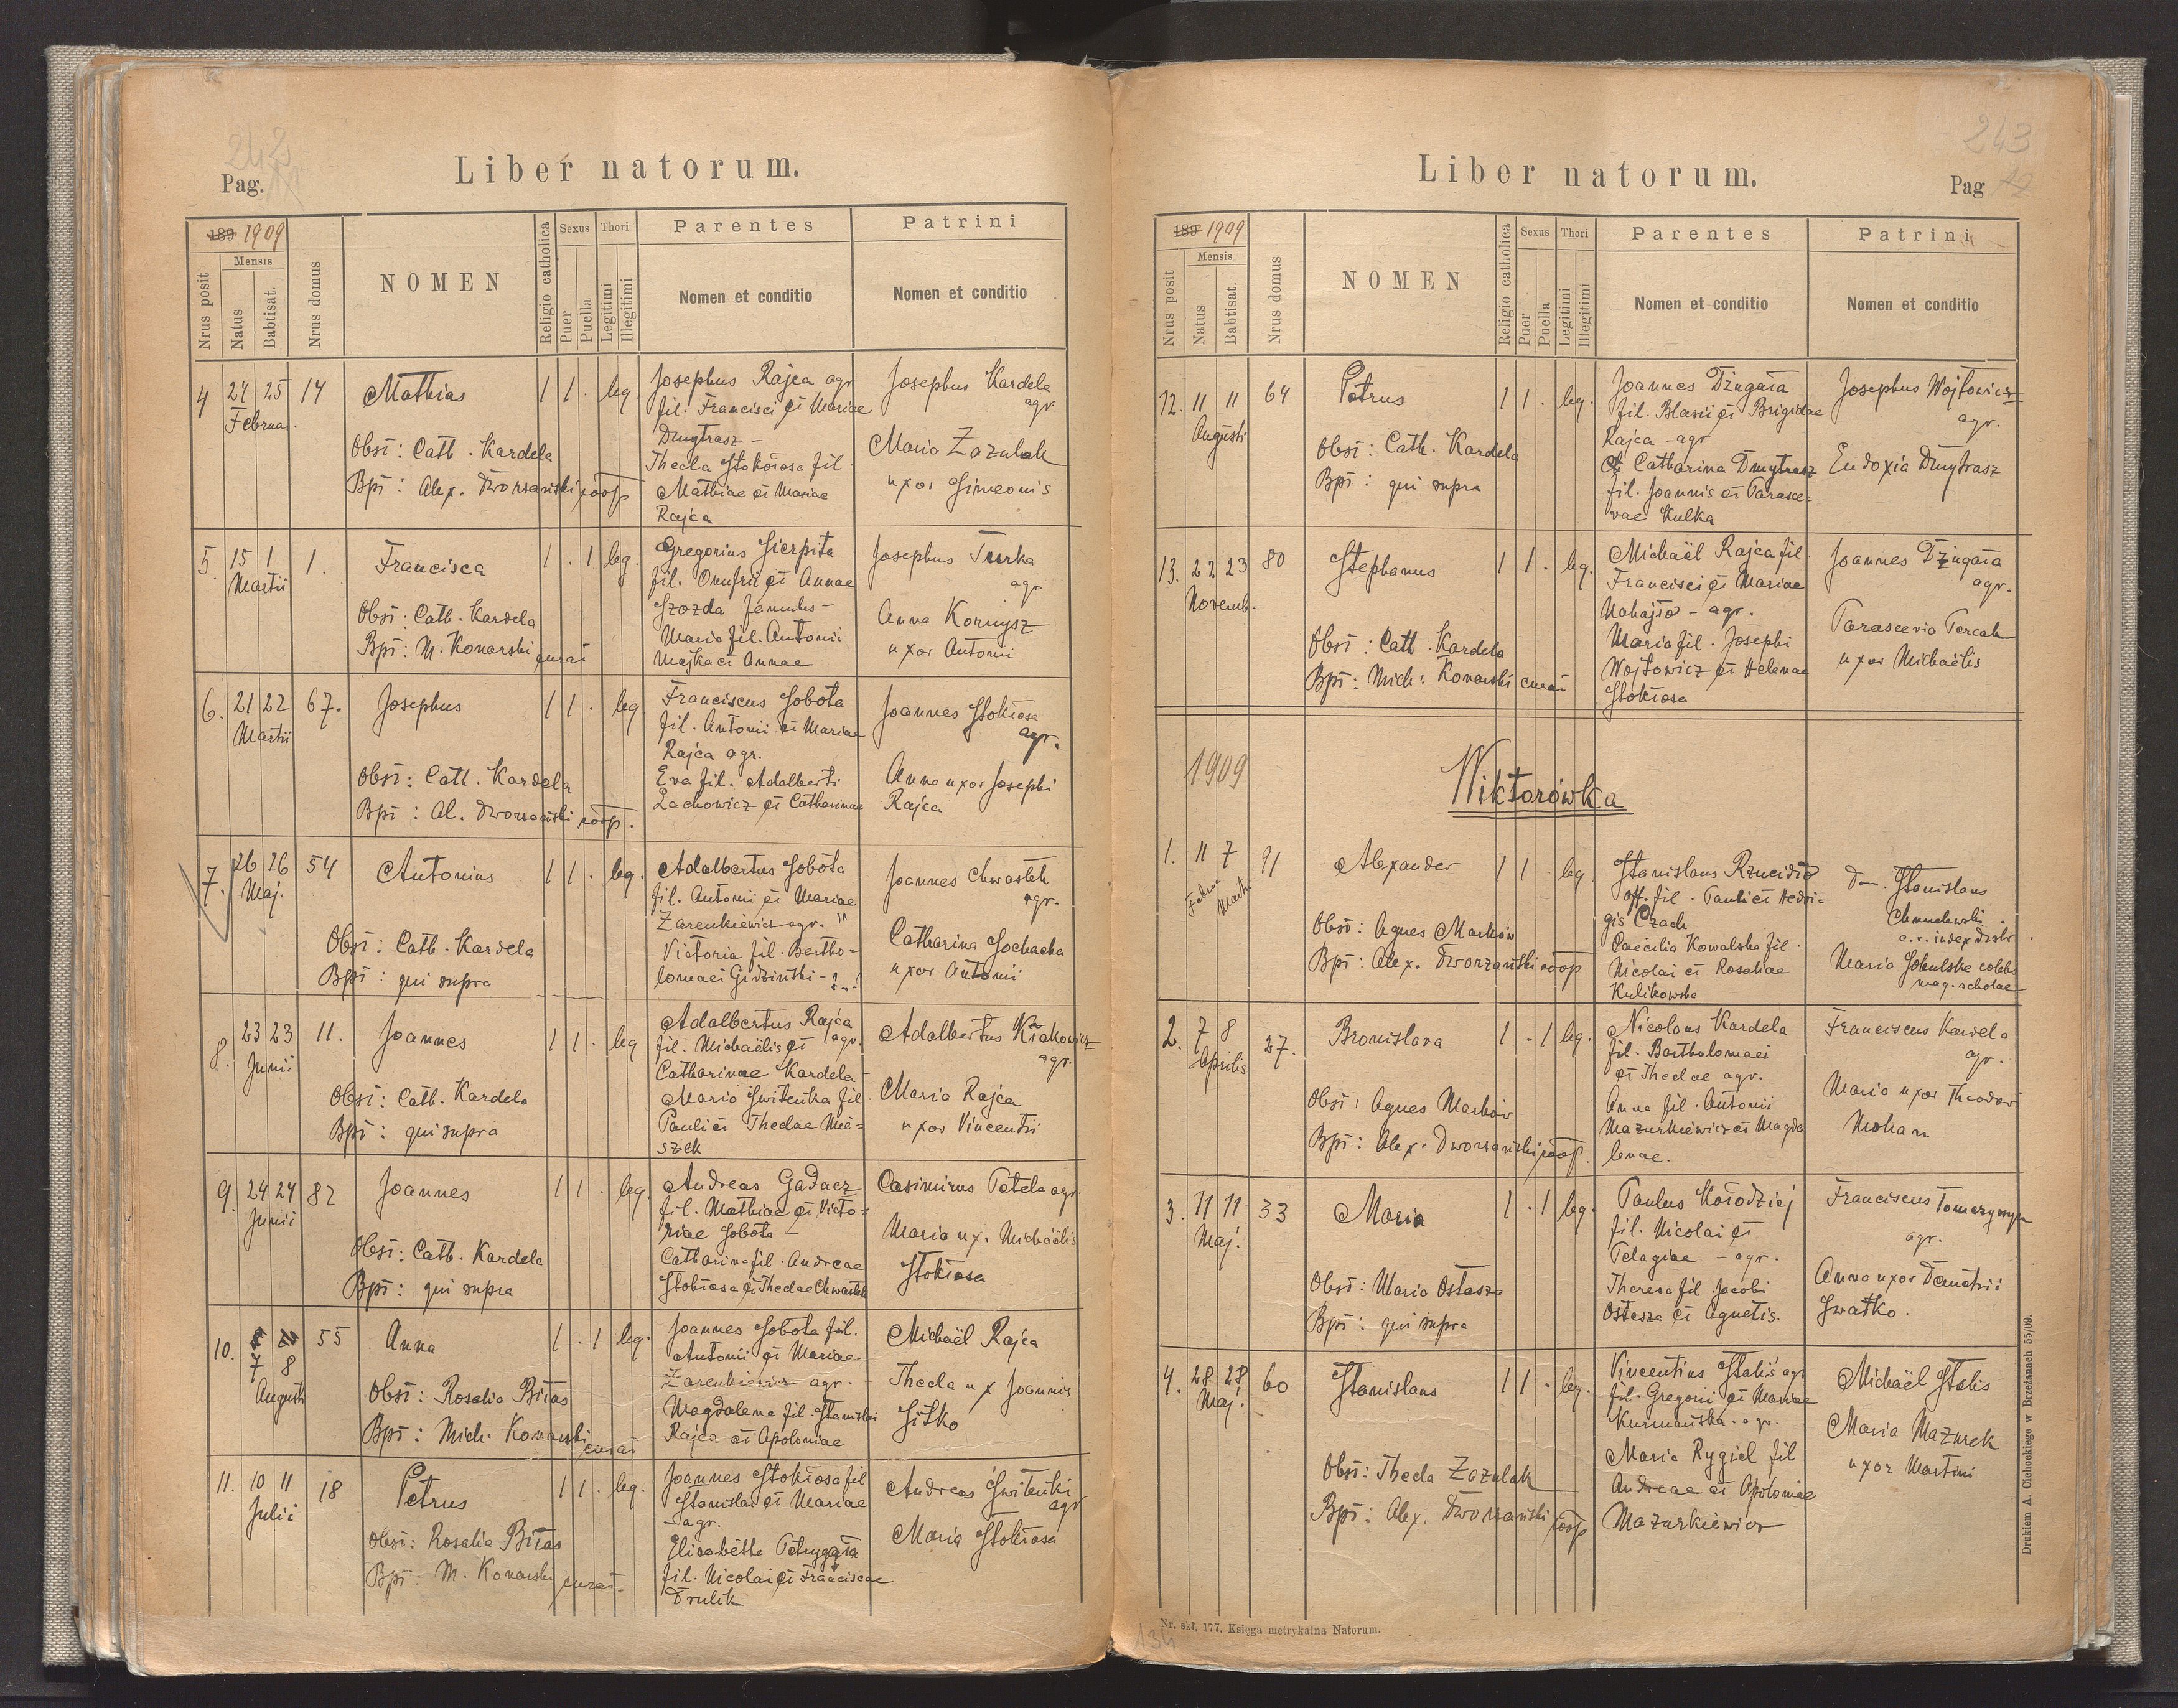 242
Pag.
Liber natorum.
189 1909
Nrus posit
Mensis
Natus
Babtisat.
Nrus domus
NOMEN
Religio catholica
Sexus
Puer
Puella
Thori
Legitimi
Illegitimi
Parentes
Nomen et conditio
Patrini
Nomen et conditio
4 24 25 14 Mathias 1 1 . leg.
Februar.
Obst: Cath. Kardela
Bpt: Alex. Dworzański coop
Josephus Rajca agr
fil. Francisci et Mariae
Dmytrasz -
Thecla Stokłosa fil.
Mathiae et Mariae
Rajca
Josephus Kardela
agr.
Maria Zazulak
uxor Simeonis
5. 15 1 1. Francisca 1 . 1 leg.
Martii
Obst: Cath. Kardela
Bpt: M. Konarski curat
Gregorius Sierpita
fil. Onufrii et Annae
Szozda famulus -
Maria fil. Antonii
Majka et Annae
Josephus Turka
agr.
Anna Kornysz
uxor Antonii
6. 21 22 67. Josephus 1 1 . leg.
Martii
Obst: Cath. Kardela
Bpt: Al. Dworzański coop.
Franciscus Sobota
fil. Antonii et Mariae
Rajca agr.
Eva fil. Adalberti
Lachowicz et Catharinae
Joannes Stokłosa
agr.
Anna uxor Josephi
Rajca
7. 26 26 54 Antonius 1 1 . leg.
Maj.
Obst: Cath. Kardela
Bpt: qui supra
Adalbertus Sobota
fil. Antonii et Mariae
Zarenkiewicz agr.
Victoria fil. Bartho-
lomaei Gidziński
Joannes Chwastek
agr.
Catharina Sochacka
uxor Antonii
8. 23 23 11. Joannes 1 1 . leg
Junii
Obst: Cath. Kardela
Bpt: qui supra
Adalbertus Rajca
fil. Michaëlis et agr.
Catharinae Kardela -
Maria Switenka fil.
Pauli et Theclae Mie-
szek
Adalbertus Krakowicz
agr.
Maria Rajca
uxor Vincentii
9. 24 24 82 Joannes 1 1 . leg.
Junii
Obst: Cath. Kardela
Bpt: qui supra
Andreas Gadacz
fil. Mathiae et Victo-
riae Sobota -
Catharina fil. Andreae
Stokłosa et Theclae Chwastek
Casimirus Petela agr.
Maria ux. Michaëlis
Stokłosa
10. 7 8 55 Anna 1 . 1 leg.
Augusti
Obst: Rosalia Biłas
Bpt: Mich. Konarski curat
Joannes Sobota fil.
Antonii et Mariae
Zarenkiewicz agr.
Magdalena fil. Stanislai
Rajca et Apoloniae
Michaël Rajca
Thecla ux Joannis
Sitko
11. 10 11 18 Petrus 1 1 . leg.
Julii
Obst: Rosalia Biłas
Bpt: M. Konarski curat.
Joannes Stokłosa fil
Stanislai et Mariae
- agr.
Elisabetha Petrygała
fil. Nicolai et Franciscae
Drulik
Andreas Switenki
agr
Maria Stokłosa
243
Liber natorum.
Pag 12
189 1909
Nrus posit
Mensis
Natus
Babtisat.
Nrus domus
NOMEN
Religio catholica
Sexus
Puer
Puella
Thori
Legitimi
Illegitimi
Parentes
Nomen et conditio
Patrini
Nomen et conditio
12. 11 11 64 Petrus 1 1 . leg.
Augusti
Obst: Cath. Kardela
Bpt: qui supra
Joannes Dżugała
fil. Blasii et Brigidae
Rajca - agr
et Catharina Dmytrasz
fil. Joannis et Parasce-
vae Kulka
Josephus Wojtowicz
agr.
Eudoxia Dmytrasz
13. 22 23 80 Stephanus 1 1 . leg.
Novemb.
Obst: Cath. Kardela
Bpt: Mich: Konarski curat
Michaël Rajca fil
Francisci et Mariae
Nahajło - agr.
Maria fil. Josephi
Wojtowicz et Helenae
Stokłosa
Joannes Dżugała
agr.
Parascevia Torcah
uxor Michaëlis
1909
Wiktorówka
1. 11 7 91 Alexander 1 1 . leg.
Februa Martii
Obst: Agnes Markow
Bpt: Alex. Dworzański coop
Stanislaus Rzucidło
off. fil. Pauli et Hedvi-
gis Czach
Caecilia Kowalska fil.
Nicolai et Rosaliae
Kulikowska
Stanislaus
Chmielewski
c.r. index distr.
Maria Sokulska coleb
mag. scholae
2. 7 8 27. Bronislava 1 . 1 leg.
Aprilis
Obst: Agnes Markow
Bpt: Alex. Dworzański coop.
Nicolaus Kardela
fil. Bartholomaei
et Theclae agr.
Anna fil. Antonii
Mazurkiewicz et Magda
lenae.
Franciscus Kardela
agr.
Maria uxor Theodori
Mohan
3. 11 11 33 Maria 1 . 1 leg.
Maj.
Obst: Maria Ostasza
Bpt: qui supra
Paulus Kołodziej
fil. Nicolai et
Pelagiae - agr.
Theresa fil Jacobi
Ostasza et Agnetis.
Franciscus
agr.
Anna uxor Demetrii
Swatko.
4. 28 28 60 Stanislaus 1 1 . leg.
Maj.
Obst: Thecla Zazulak
Bpt: Alex. Dworzański coop
Vincentius Stalis agr
fil. Gregorii et Mariae
Kurmańska. agr.
Maria Rygiel fil
Andreae et Apoloniae
Mazurkiewicz
Michaël Stalis
Maria Mazurek
uxor Martini
Drukiem A. Cichockiego w Brzeżanach 55/09.
Nr. skł. 177. Księga metrykalna Natorum.
134